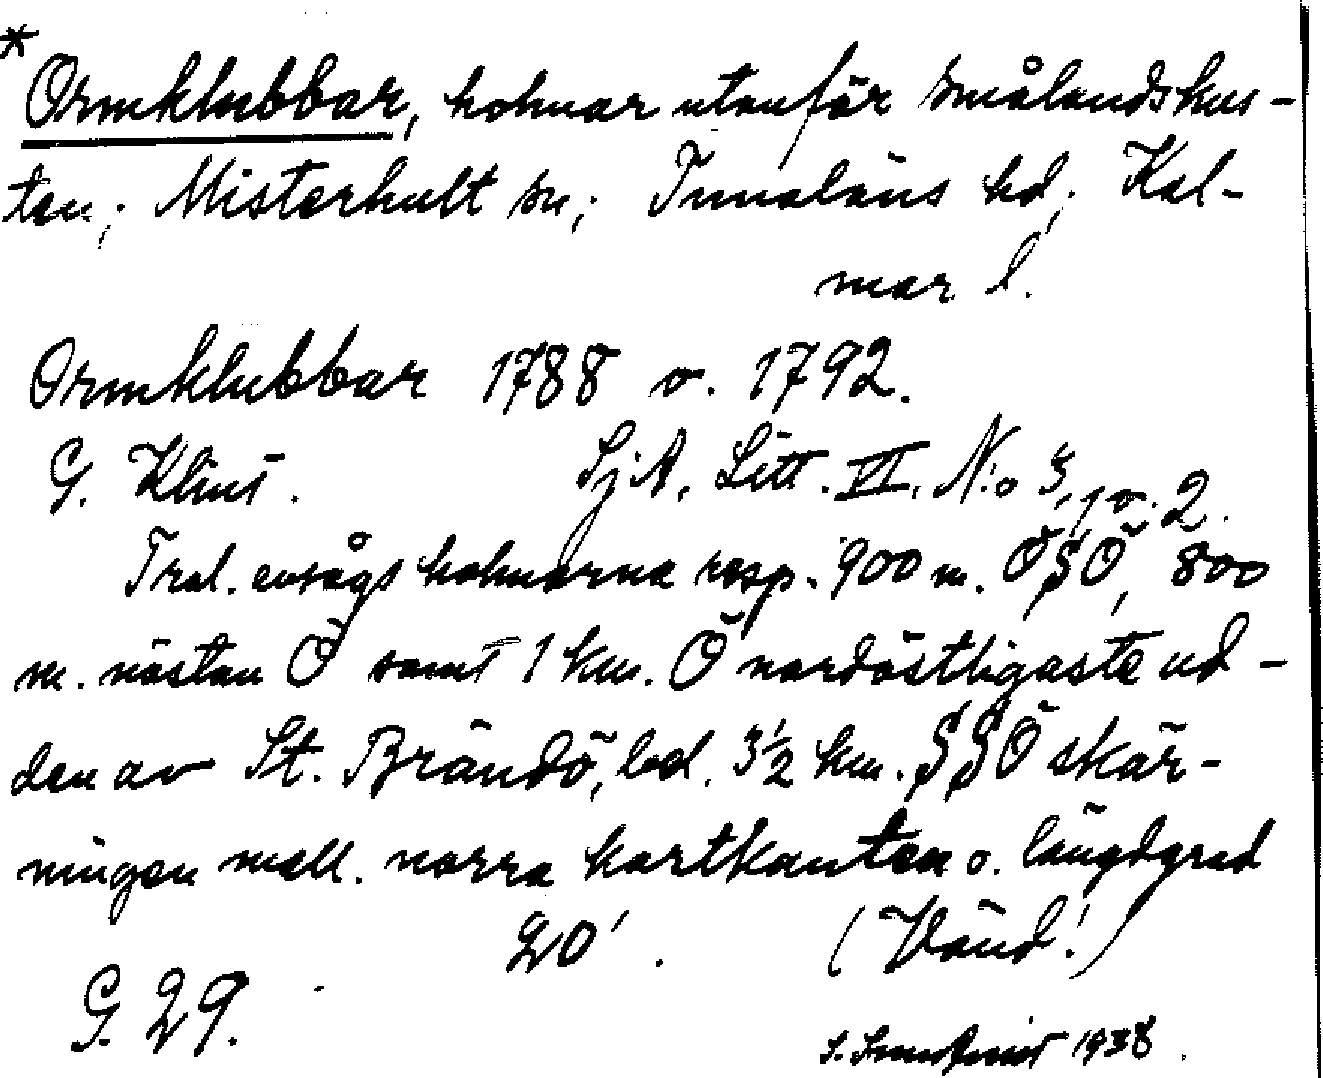 *
Ormklubbar, holmar utanför Smålandskus-
ten; Misterhult sn; Tunaläns hd; Kal-
mar l.
Ormklubbar 1788 o. 1792.
G. Klint. SjA, Litt. VI. N:o 3, 1 o. 2.
Tral. avsågs holmarna resp. 900 m. ÖSÖ, 800
m. nästan Ö samt 1 km. Ö nordöstligaste ud-
den av St. Brändö, bel. 3½ km. SSÖ skär-
ningen mell. norra kartkanten o. längdgrad
20'. (Vänd!)
G. 29.
1938